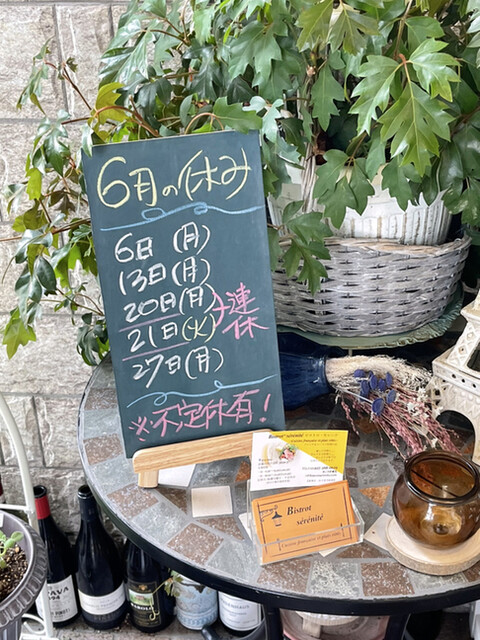 6月の休み
6日(月)
13日(月)
20日(月)
21日(火)
連休
27日(月)
※不定休有！
Bistrot
sérénité